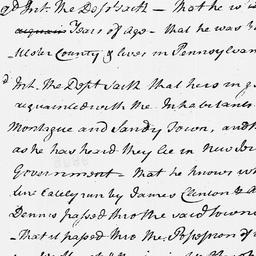 Int. The Depo't saith – That he is
Years of Age – that he was b
Ulster County & lives in Pennsylvan
d Int. The Dep't saith that he is in g
acquainted with the Inhabitants
Montague and Sandy Town, and th
as he has heard they lie in New Jer
Government – That he knows wh
line Lately run by James Clinton & A
Dennis passed thro the said Town
– That it passed thro the Possession of